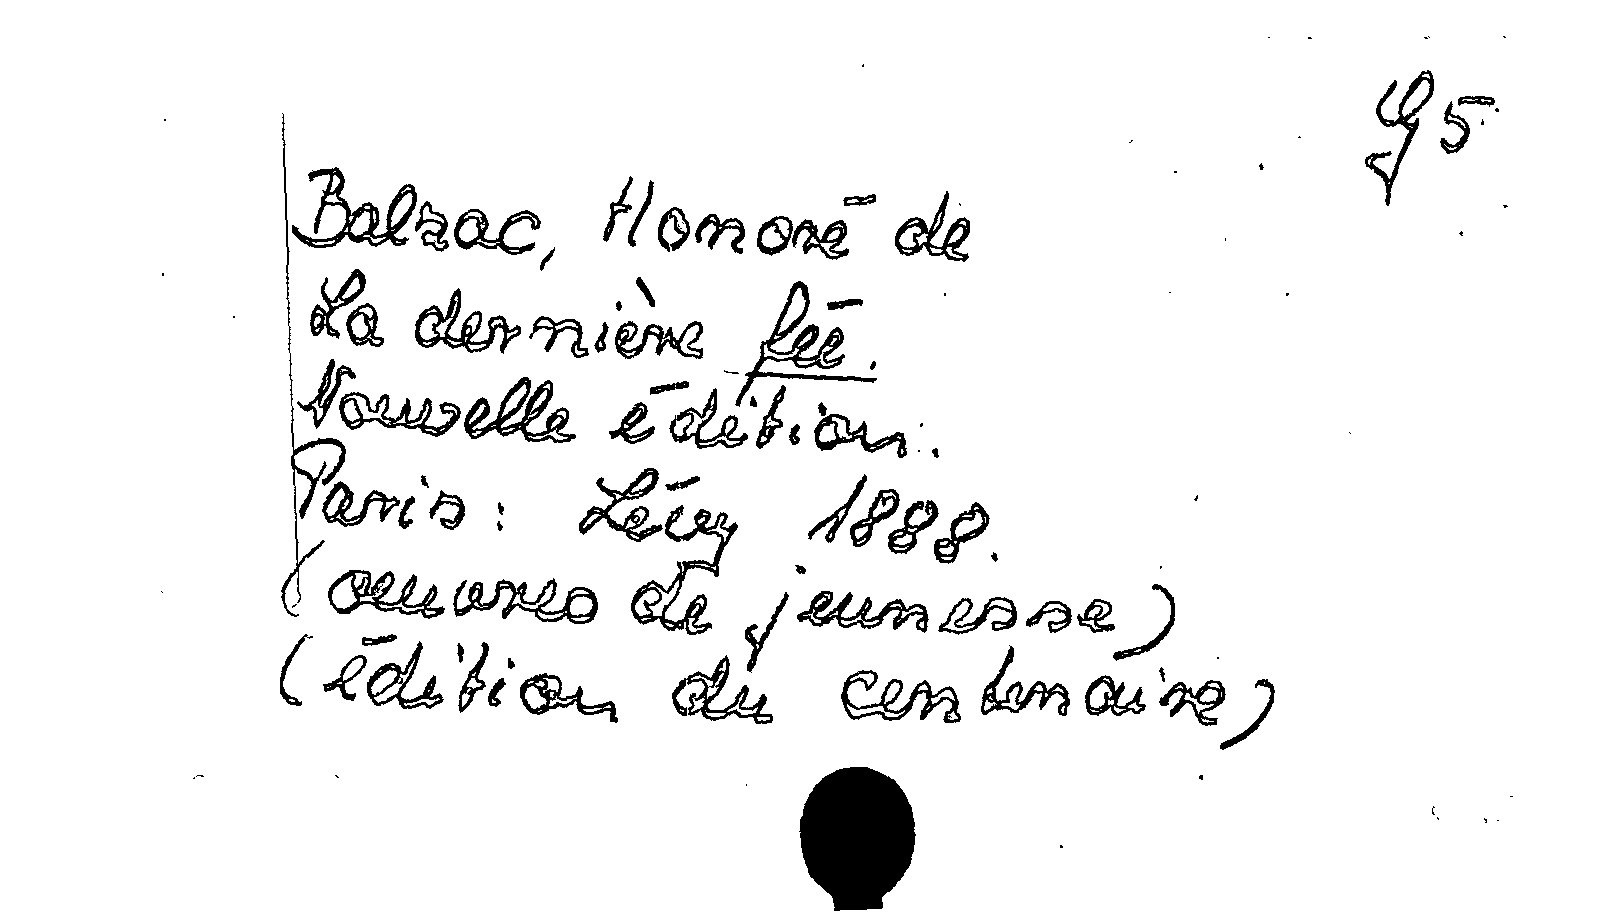 G 5
Balzac, Honoré de
La dernière fée.
Nouvelle édition.
Paris: Lévy 1888.
(oeuvres de jeunesse)
(édition du centenaire)